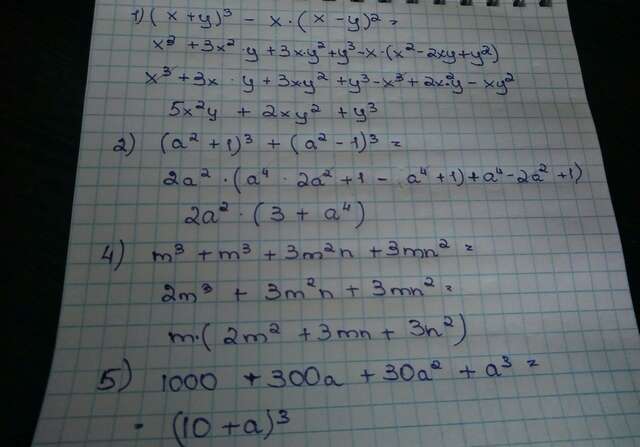 1) (x+y)³ - x·(x-y)² =
x³ + 3x²·y + 3x·y² + y³ - x·(x² - 2xy + y²)
x³ + 3x·y + 3xy² + y³ - x³ + 2x²y - xy²
5x²y + 2xy² + y³
2) (a²+1)³ + (a²-1)³ =
2a²·(a⁴·2a²+1 - a⁴+1)+a⁴-2a²+1)
2a²·(3+a⁴)
4) m³ + m³ + 3m²n + 3mn² =
2m³ + 3m²n + 3mn² =
m·(2m² + 3mn + 3n²)
5) 1000 + 300a + 30a² + a³ =
· (10+a)³